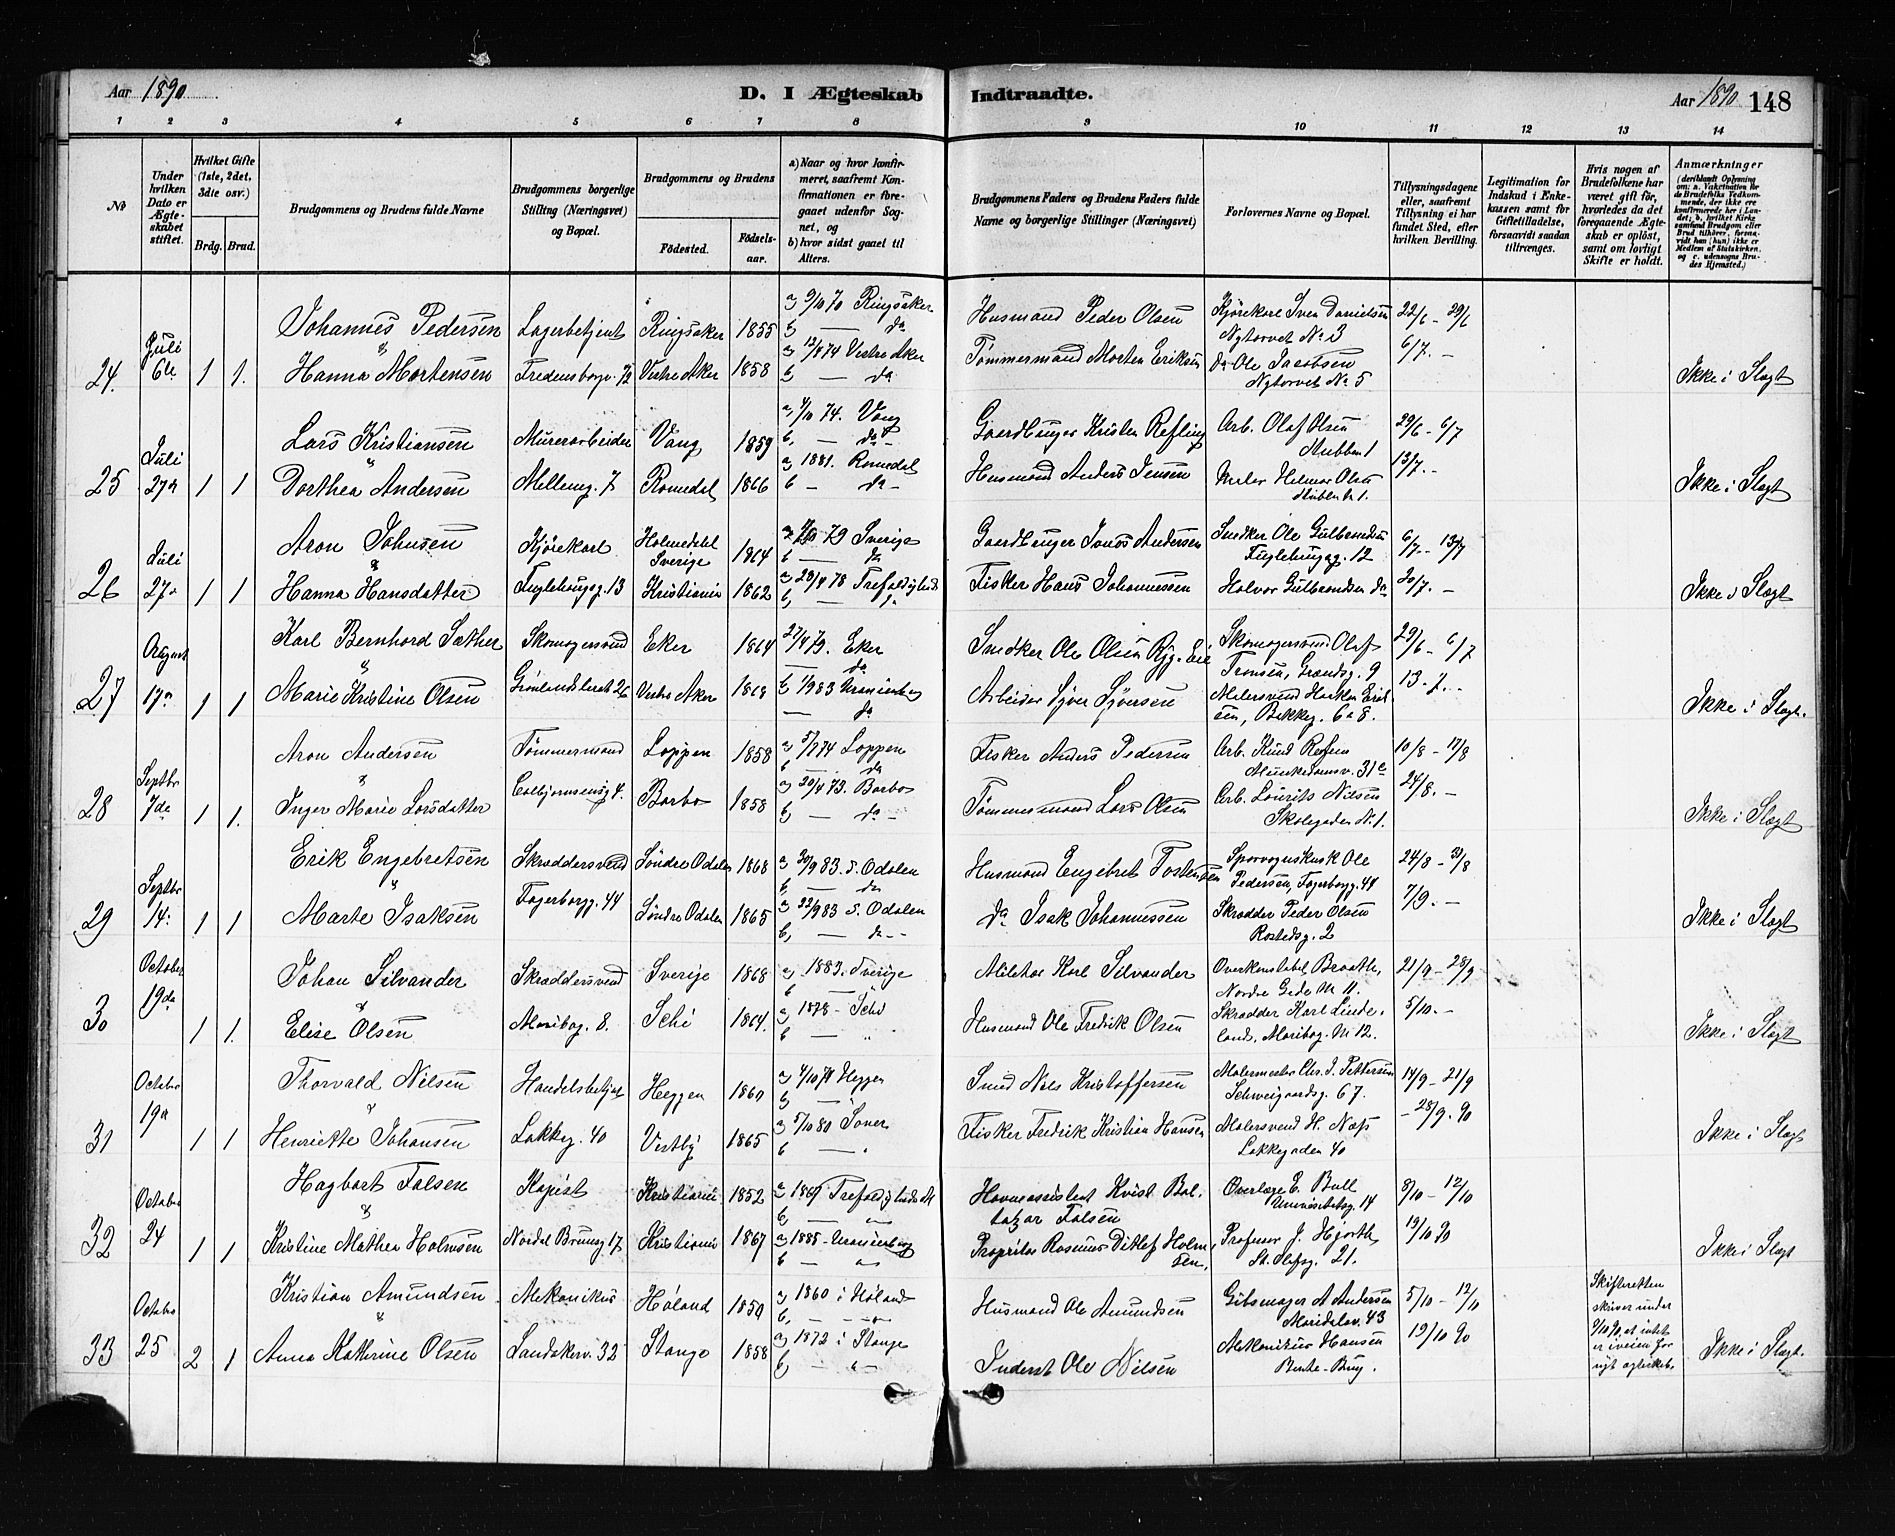 Aar 1890
D. I Ægteskab Indtraadte.
Aar 1890 148
1 2 3 4 5 6 7 8 9 10 11 12 13 14
No
Under hvilken Dato er Ægteskabet stiftet.
Hvilket Gifte (1ste, 2det, 3die osv.)
Brdg. Brud.
Brudgommens og Brudens fulde Navne
Brudgommens borgerlige Stilling (Næringsvei) og Bopæl.
Brudgommens og Brudens
Fødested. Fødselsaar.
a) Naar og hvor konfirmeret, saafremt Konfirmationen er foregaaet udenfor Sognet, og
b) hvor sidst gaaet til Alters.
Brudgommens Faders og Brudens Faders fulde Navne og borgerlige Stillinger (Næringsvei)
Forlovernes Navne og Bopæl.
Tillysningsdagene eller, saafremt Tillysning ei har fundet Sted, efter hvilken Bevilling.
Legitimation for Indskud i Enkekassen samt for Giftetilladelse, forsaavidt saadan tiltrænges.
Hvis nogen af Brudefolkene har været gift før, hvorledes da det foregaaende Ægteskab er opløst, samt om lovligt Skifte er holdt.
Anmærkninger (deriblandt Oplysning om: a. Vakcination for de Brudefolks Vedkommende, der ikke ere konfirmerede her i Landet; b. hvilket Kirkesamfund Brudgom eller Brud tilhører, forsaavidt han (hun) ikke er Medlem af Statskirken, og c. udensogns Brudes Hjemsted.)
Johannes Pedersen Lagerbetjent Ringsaker 1855 a 9/10 70 Ringsaker b — da Husmand Peder Olsen Kjørekarl Sven Danielsen Nytorvet No 3 22/6 - 29/6
24. Juli 6te 1 1. & Hanna Mortensen Fredensborgv. 72 Vestre Aker 1858 a 12/8 74 Vestre Aker b — da Tømmermand Morten Eriksen Do Ole Jacobsen Nytorvet No 5 6/7. - Ikke i Slægt
Lars Kristiansen Murerarbeider Vang 1859 a 4/10 74. Vang b, — da - Gaardbruger Kristen Refling Arb. Olaf Olsen Stubben 1 29/6 - 6/7
25 Juli 27de 1 1 " Dorthea Andersen Mølleng. 7 Romedal 1866 a 1881. Romedal b — da - Husmand Anders Jensen Maler Helmer Olsen Stubben No 1. 13/7. - Ikke i Slægt
Aron Johnsen Kjørekarl Holmedal Sverige 1864 79 Sverige b — da Gaardbruger Jonas Andersen Snedker Ole Gulbrandsen Fuglehaugg. 12 6/7 - 13/7
26 Juli 27de 1 1 & Hanna Hansdatter Fuglehaugg. 13 Kristiania 1862 a 28/4 78 Trefoldighed b, — da Fisker Hans Johannessen Halvor Gulbrandsen do 20/7. - Ikke i Slægt
Karl Bernhard Sæther Skomagersvend Eker 1864 27/4 79. Eker — da Snedker Ole Olsen Ryg. Eie Skomagersvend Olaf Tronsen, Grændsg. 9 29/6 - 6/7
27 August 17de 1 1 " Marie Kristine Olsen Grønlandsleret 26 Vestre Aker 1868 83 Uranienborg — da Arbeider Syver Syversen Malersvend Haakon Eriksen, Bakkeg. 6 a 8. 13 - 7. - Ikke i Slægt.
Aron Andersen Tømmermand Loppen 1858 a 5/7 74 Loppen b — da Fisker Anders Pedersen Arb. Knud Munkedamsv. 31 c 10/8 - 17/8
28 Septbr 7de 1 1. & Inger Marie Larsdatter Colbjørnsensg. 4. Barbo 1858 a 20/4 73. Barbo b — da - Tømmermand Lars Olsen Arb. Lourits Nilsen Skolegaden No 1. 24/8. - Ikke i Slægt
Erik Engebretsen Skræddersvend Søndre Odalen 1868 a 30/9 83. S. Odalen b — da Husmand Engebret Torstensen Sporvognskusk Ole Pedersen, Fagerborgg. 44 24/8 - 31/8
29 Septbr 14. 1 1 " Marte Isaksen Fagerborgg. 44 Søndre Odalen 1865 a 23/9 83 S. Odalen b, — da - - do Isak Johannessen Skrædder Peder Olsen Rostedsg. 2 7/9. - Ikke i Slægt
Johan Silvander Skræddersvend Sverige 1868 a 1883. Sverige b — Militær Karl Silvander Overkonstabel Braathe, Nordre Gade No 11. 21/9 - 28/9
30 October 19de 1 1. & Elise Olsen Maribog. 8. Schi 1864. a 1878 - Schi b — " Husmand Ole Fredrik Olsen Skrædder Karl Lindeland, Maribog. No 12. 5/10. - Ikke i Slægt
Thorvald Nilsen Handelsbetjent Heggen 1860 a 4/10 Heggen b — Smed Nils Kristoffersen Malermester Chr. J. Pettersen Schweigaardsg. 67. 14/9 - 21/9
31 Octobr 19de 1 1 & Henriette Johansen Lakkeg. 40 Vestby 1865 a 5/10 80 Soner b — " Fisker Fredrik Kristian Hansen Malersvend H. Næss Lakkegaden 40 - 28/9. 90 Ikke i Slægt
Hagbart Falsen Kopist Kristiania 1852 a 1867 Trefoldighed b, — " Havneassistent Kvist Baltazar Falsen Overlæge E. Bull Universitetsg. 14 5/10 - 12/10
32 Octobr 24 1 1 & Kristine Mathea Holmsen Nordal Brunsg 17 Kristiania 1867 a 1885 - Uranienborg b — " Proprietær Rasmus Ditlef Holmsen, Professor J. Hjorth St. Olafsg. 21. 19/10 90 Ikke i Slægt
Kristian Amundsen Mekanikus Høland 1850 a 1860 i Høland b, — " Husmand Ole Amundsen Gibsmager A Andersen Maridalsv. 43 5/10 - 12/10
33 Octobr 25 2 1 " Anna Katherine Olsen Sandakerv. 32 Stange 1858 a 1872 i Stange b — " Inderst Ole Nilsen Mekanikus Hansen Bentse-Brug. 19/10 90 Skifteretten skriver under 9/10 90, at intet er iveien for nyt ægteskab. Ikke i Slægt.